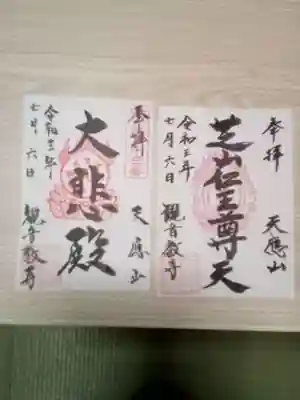 奉拝
天應山
芝山仁王尊天
令和三年
七月六日
觀音教寺
奉拝
天應山
大悲殿
令和三年
七月六日
觀音教寺